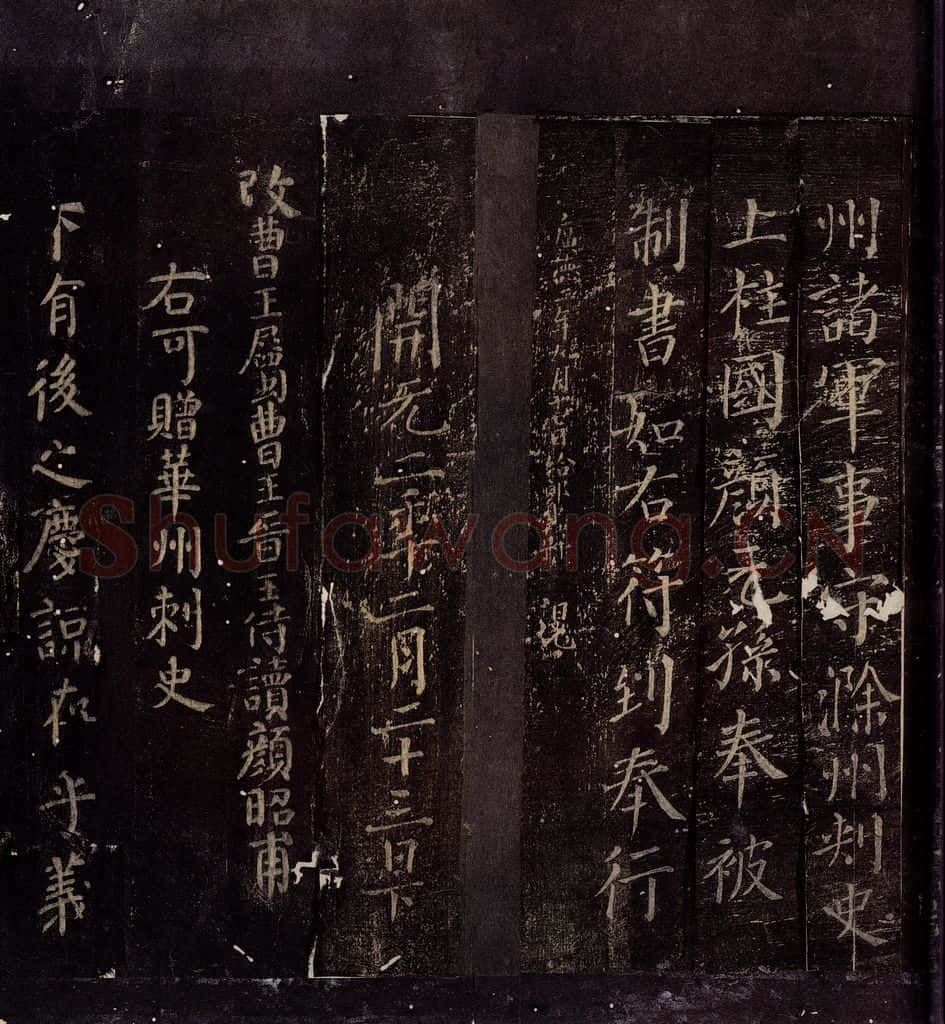 州諸軍事守滁州刺史
上柱國顏元孫奉被
制書如右符到奉行
年九月日
開元二年二月二十三日下
改曹王屬曹王晉王侍讀顏昭甫
右可贈華州刺史
下有後之慶諒在乎義
Shufawang.CN